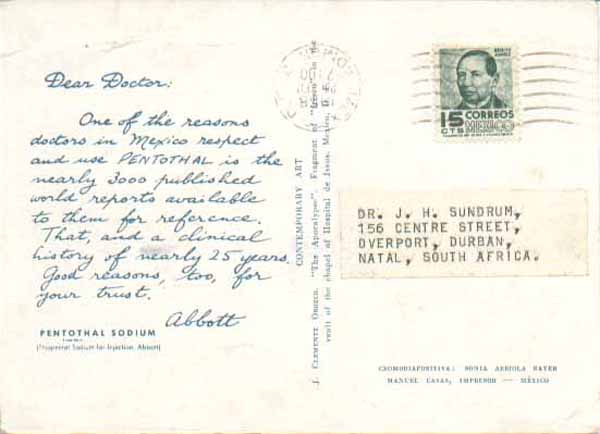 Dear Doctor:
One of the reasons
doctors in Mexico respect
and use PENTOTHAL is the
nearly 3000 published
world reports available
to them for reference.
That, and a clinical
history of nearly 25 years.
Good reasons, too, for
your trust.
Abbott
PENTOTHAL SODIUM
(Thiopental Sodium for Injection, Abbott)
CONTEMPORARY ART
J. Clemente Orozco. "The Apocalypse". Fragment of "fresco" in the
vault of the chapel of Hospital de Jesus. Mexico, D. F.
15 CORREOS
CTS MEXICO
DR. J. H. SUNDRUM,
156 CENTRE STREET,
OVERPORT, DURBAN,
NATAL, SOUTH AFRICA.
CROMODIAPOSITIVA: SONIA ARRIOLA BAYER
MANUEL CASAS, IMPRESOR — MÉXICO